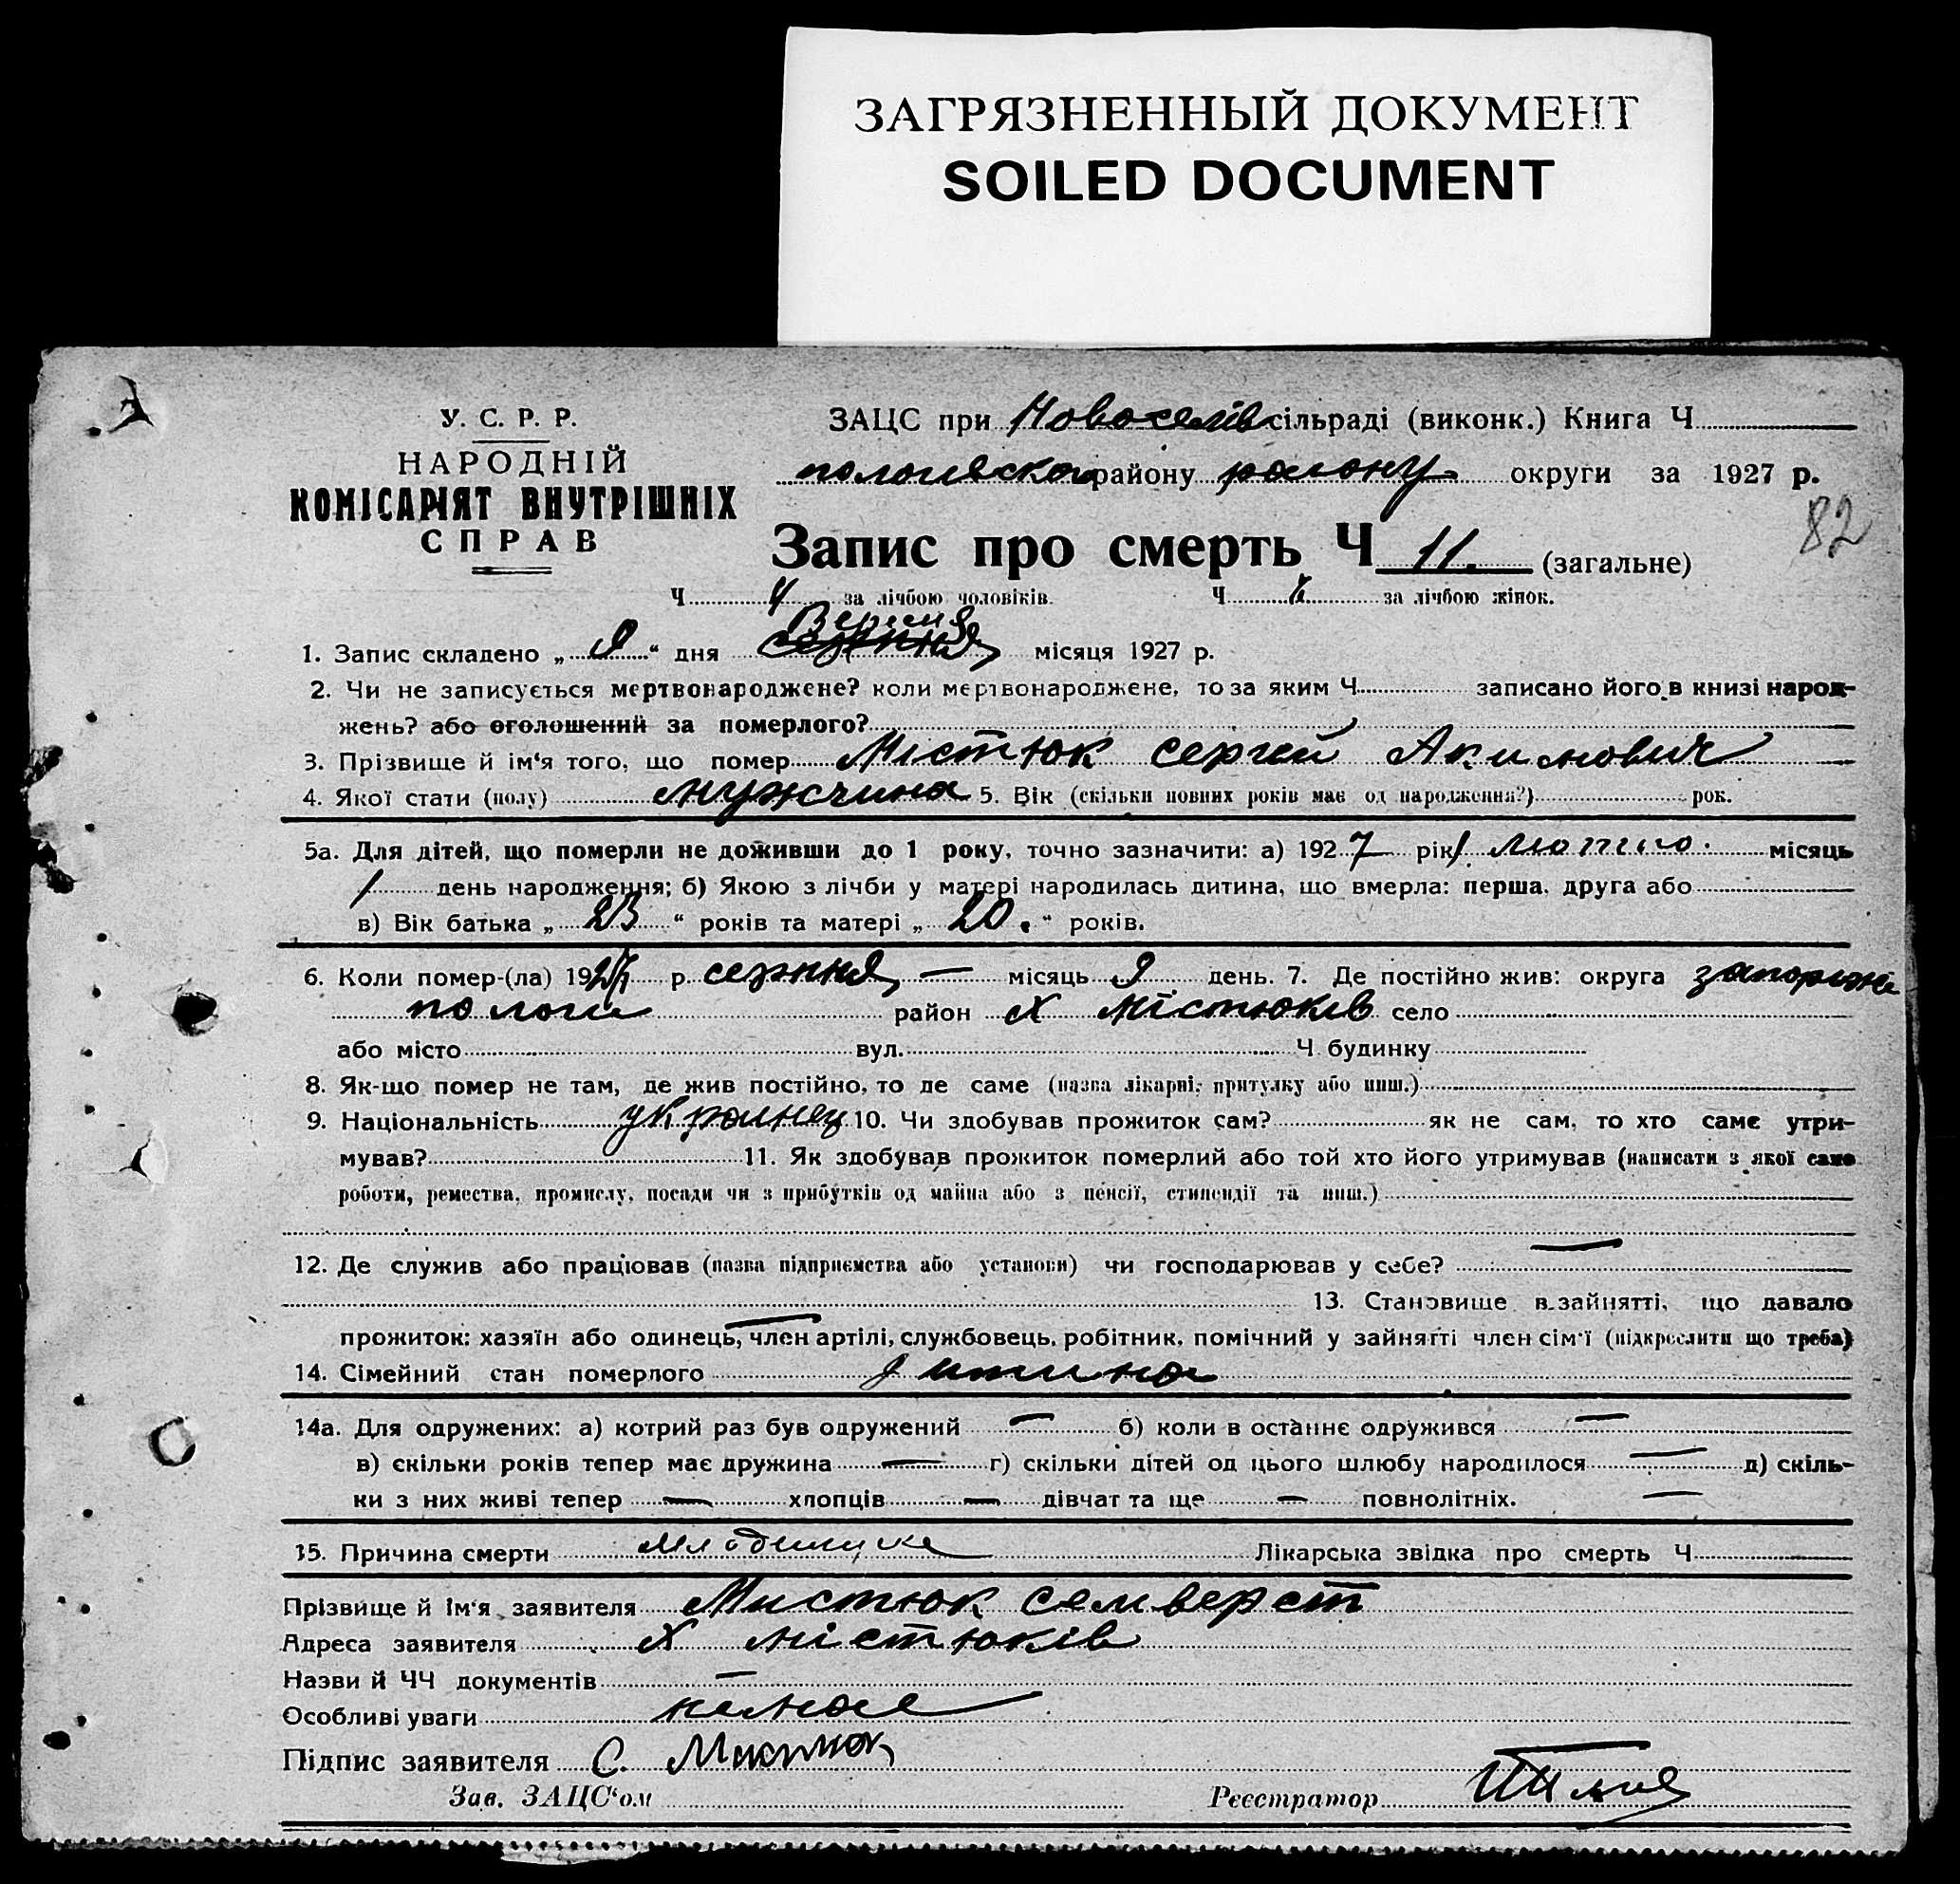 ЗАГРЯЗНЕННЫЙ ДОКУМЕНТ
SOILED DOCUMENT
У. С. Р. Р.
НАРОДНІЙ
КОМІСАРІЯТ ВНУТРІШНІХ
СПРАВ
ЗАЦС при Новоселів сільраді (виконк.) Книга Ч
району округи за 1927 р.
82
Запис про смерть Ч 11. (загальне)
Ч 4 за лічбою чоловіків. Ч за лічбою жінок.
Вересня
1. Запис складено „ “ дня серпня місяця 1927 р.
2. Чи не записується мертвонароджене? коли мертвонароджене, то за яким Ч записано його в книзі народ-
жень? або оголошений за померлого?
3. Прізвище й ім‘я того, що помер Містюк Сергей Акимович
4. Якої стати (полу) мужчина 5. Вік (скільки повних років має од народження?) рок.
5а. Для дітей, що померли не доживши до 1 року, точно зазначити: а) 1927 рік місяць
1 день народження; б) Якою з лічби у матері народилась дитина, що вмерла: перша, друга або
в) Вік батька „ 23 “ років та матері „ 20. “ років.
6. Коли помер-(ла) 1927 р. серпня — місяць день. 7. Де постійно жив: округа
пологи район Х Містюків село
або місто вул. Ч будинку
8. Як-що помер не там, де жив постійно, то де саме (назва лікарні, притулку або инш.)
9. Національність украинец 10. Чи здобував прожиток сам? як не сам, то хто саме утри-
мував? 11. Як здобував прожиток померлий або той хто його утримував (написати з якої саме
роботи, ремества, промислу, посади чи з прибутків од майна або з пенсії, стипендії та инш.)
12. Де служив або працював (назва підприємства або установи) чи господарював у себе? —
13. Становище в зайнятті, що давало
прожиток: хазяїн або одинець, член артілі, службовець, робітник, помічний у зайнятті член сім‘ї (підкреслити що треба)
14. Сімейний стан померлого дитина
14а. Для одружених: а) котрий раз був одружений — б) коли в останнє одружився —
в) скільки років тепер має дружина — г) скільки дітей од цього шлюбу народилося — д) скіль-
ки з них живі тепер — хлопців — дівчат та ще — повнолітніх. —
15. Причина смерти Лікарська звідка про смерть Ч
Прізвище й ім‘я заявителя Мистюк Селиверст
Адреса заявителя Х Містюків
Назви й ЧЧ документів —
Особливі уваги немае
Підпис заявителя С. Мистюк
Зав. ЗАЦС‘ом Реєстратор